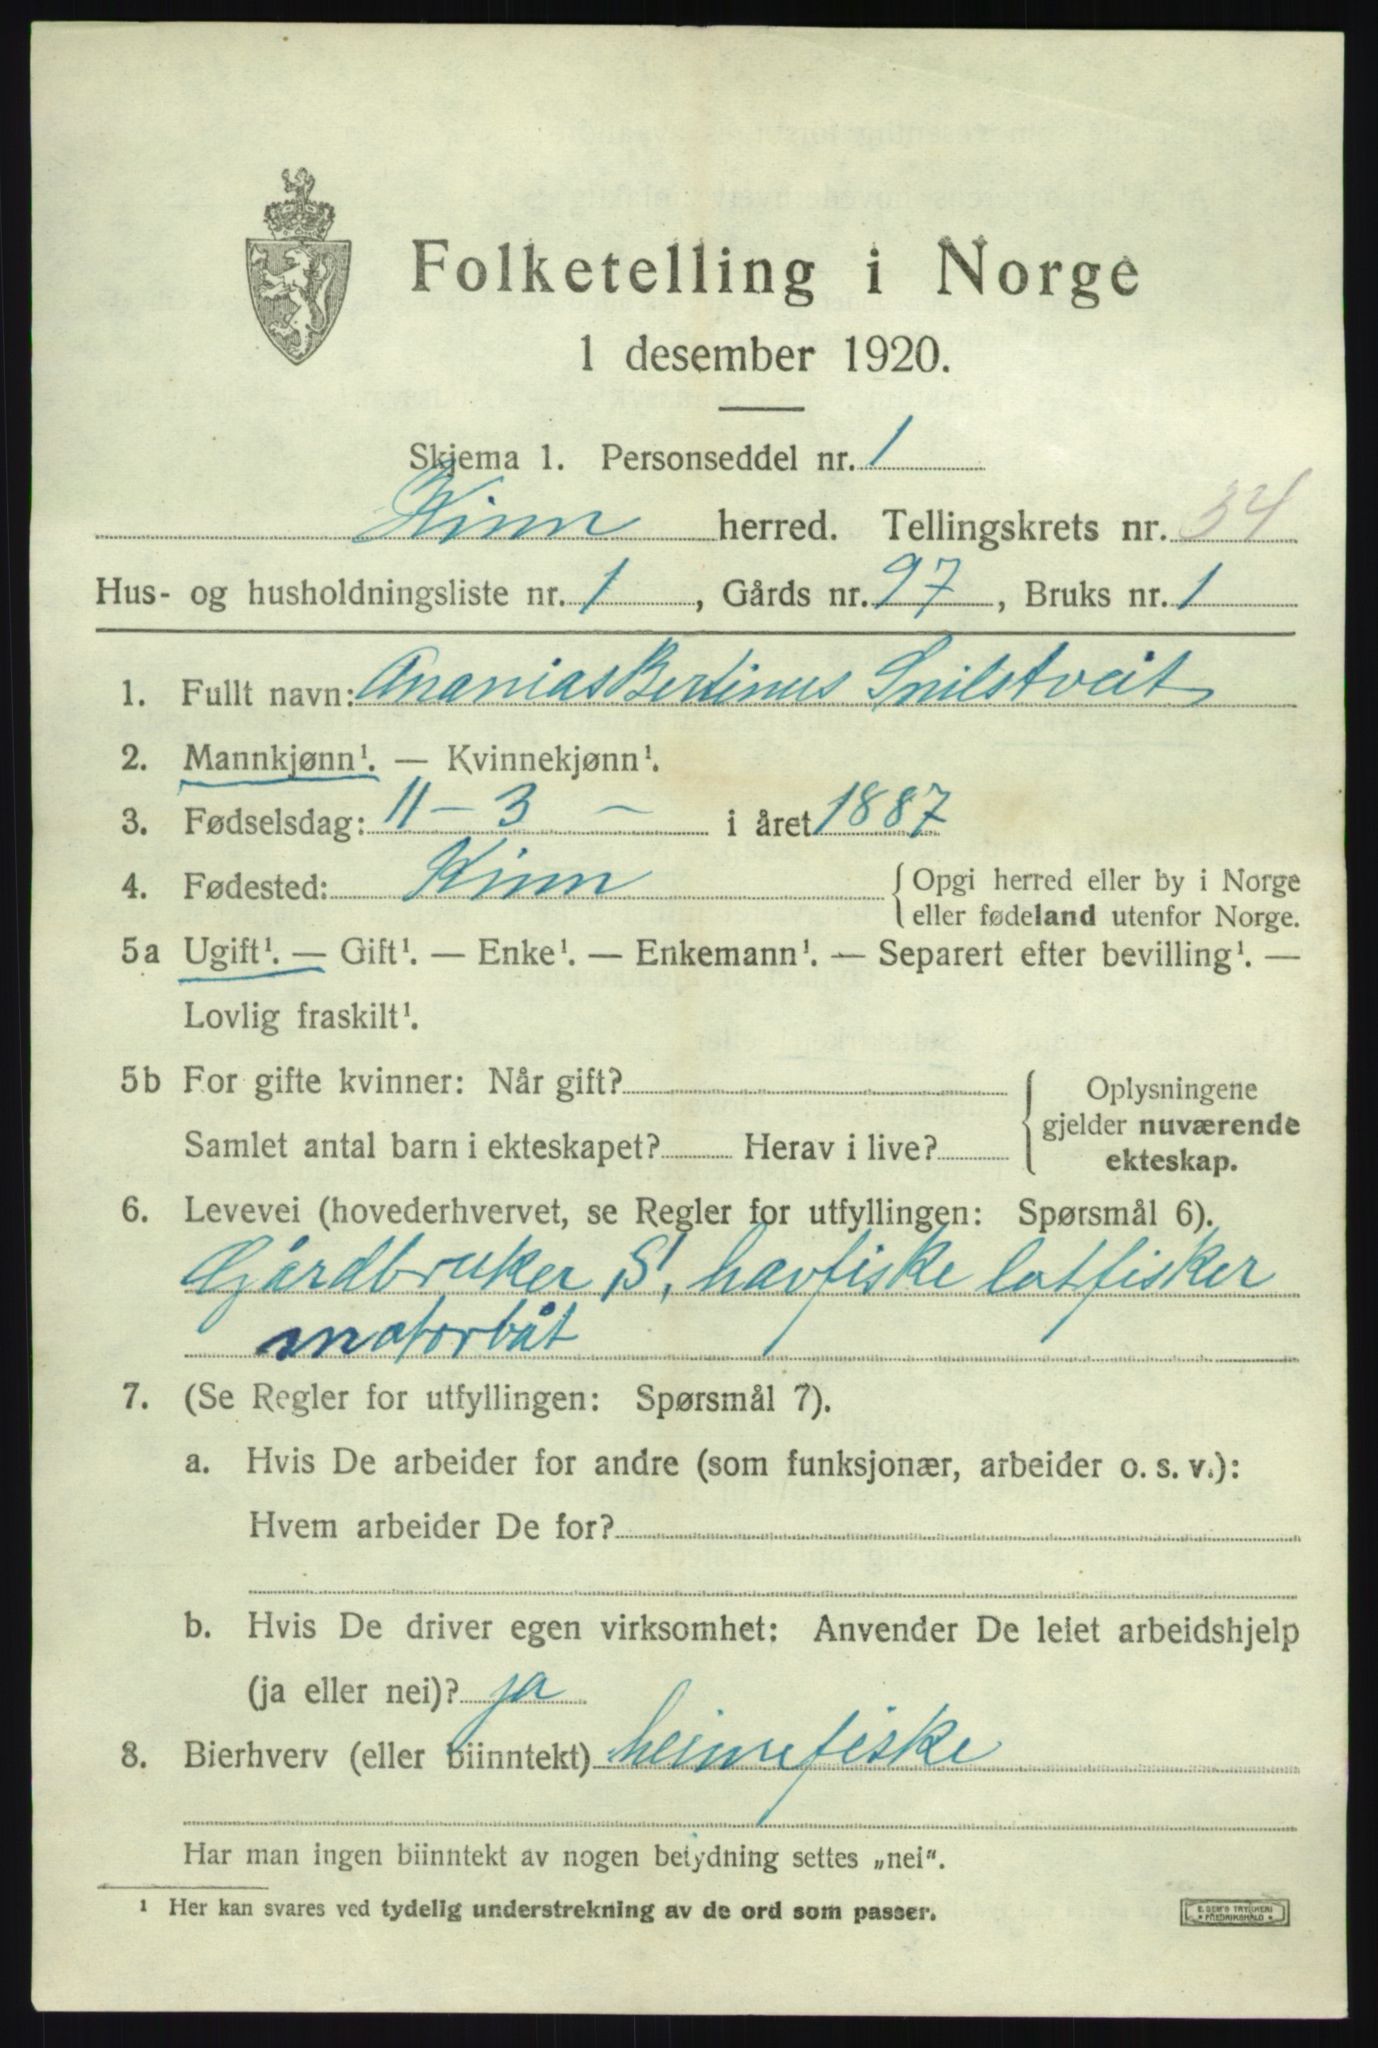 Folketelling i Norge
1 desember 1920.
Skjema 1. Personseddel nr. 1
Kinn herred. Tellingskrets nr. 34
Hus- og husholdningsliste nr. 1, Gårds nr. 97, Bruks nr. 1
1. Fullt navn: Ananias Bertinus Snilstveit
2. Mannkjønn¹. — Kvinnekjønn¹.
3. Fødselsdag: 11 – 3 – i året 1887
4. Fødested: Kinn { Opgi herred eller by i Norge
eller fødeland utenfor Norge.
5a Ugift¹. — Gift¹. — Enke¹. — Enkemann¹. — Separert efter bevilling¹. —
Lovlig fraskilt¹.
5b For gifte kvinner: Når gift? { Oplysningene
gjelder nuværende
Samlet antal barn i ekteskapet? Herav i live?
ekteskap.
6. Levevei (hovederhvervet, se Regler for utfyllingen: Spørsmål 6).
Gårdbruker, S, havfiske lotfisker
motorbåt
7. (Se Regler for utfyllingen: Spørsmål 7).
a. Hvis De arbeider for andre (som funksjonær, arbeider o. s. v.):
Hvem arbeider De for?
b. Hvis De driver egen virksomhet: Anvender De leiet arbeidshjelp
(ja eller nei)? ja
8. Bierhverv (eller biinntekt) heimefiske
Har man ingen biinntekt av nogen betydning settes „nei".
¹ Her kan svares ved tydelig understrekning av de ord som passer.
E. SEM'S TRYKKERI
FREDRIKSHALD